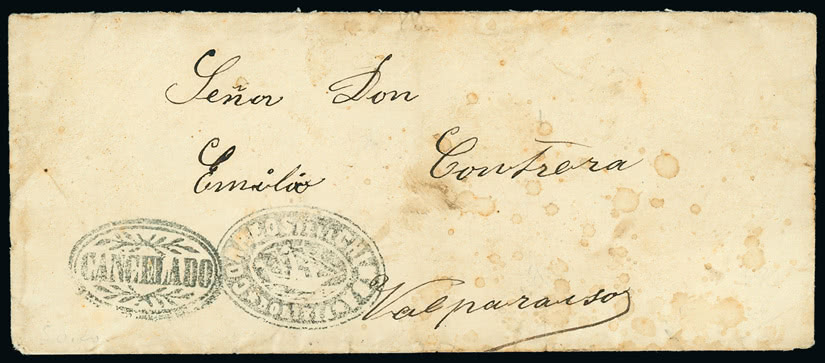 Señor Don
Emilio Contrera
CANCELADO
Valparaiso